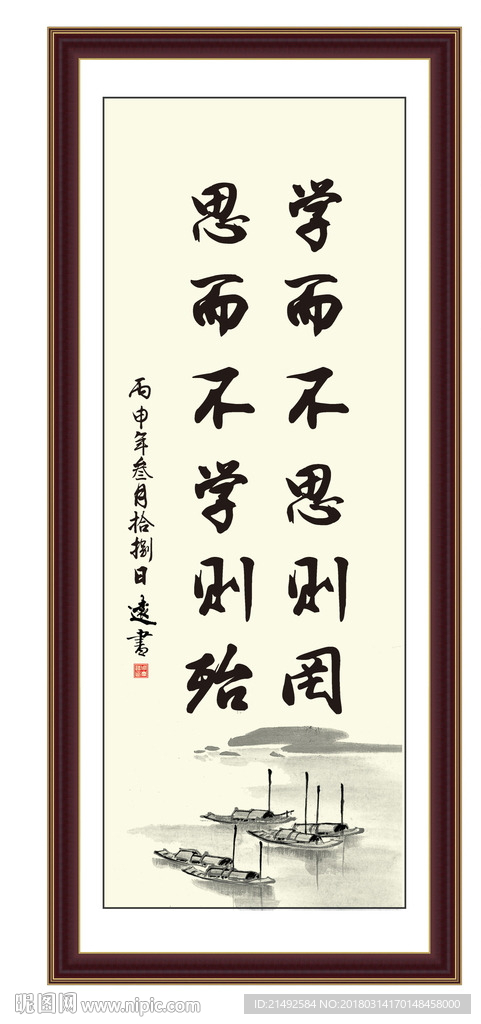 学而不思则罔
思而不学则殆
丙申年叁月拾捌日 远书
昵图网 www.nipic.com
ID:21492584 NO:20180314170148458000